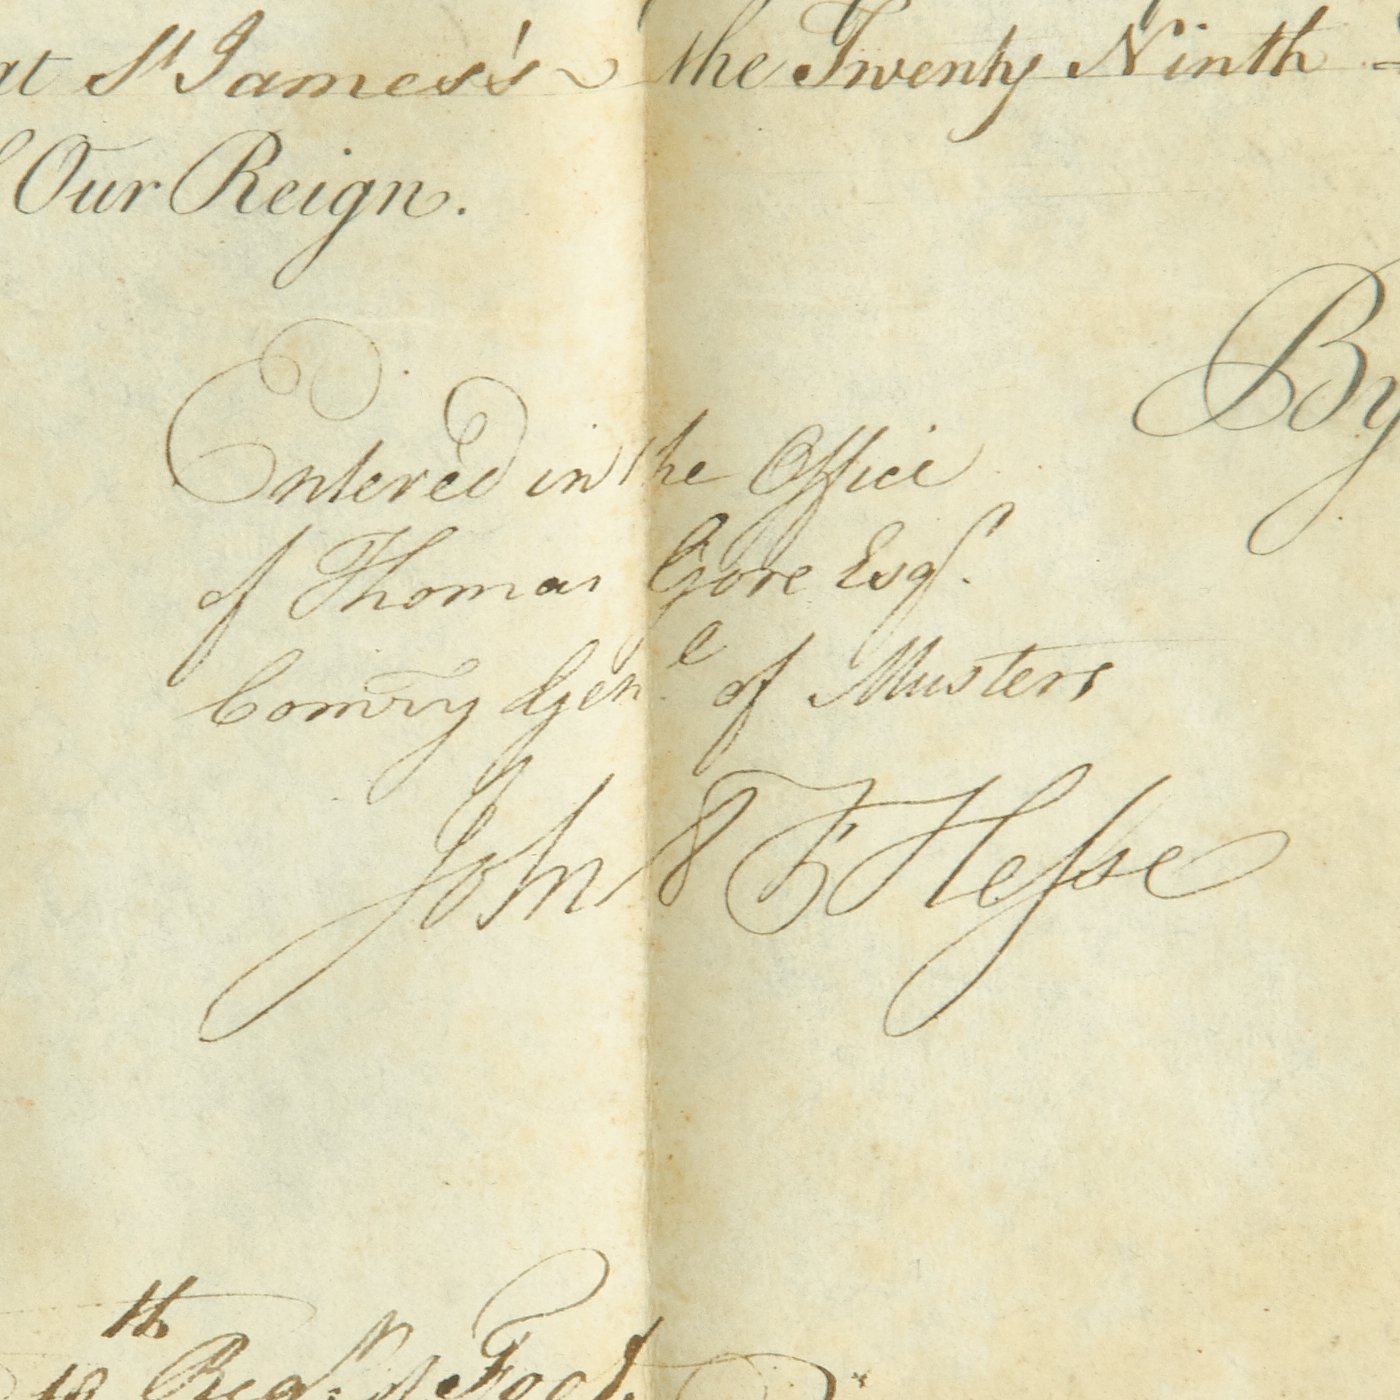 at St James's the Twenty Ninth
Our Reign.
By
Entered in the Office
of Thomas Gore Esqr.
Comry Genl. of Musters
John F Hesse
th
Regt. of Foot.